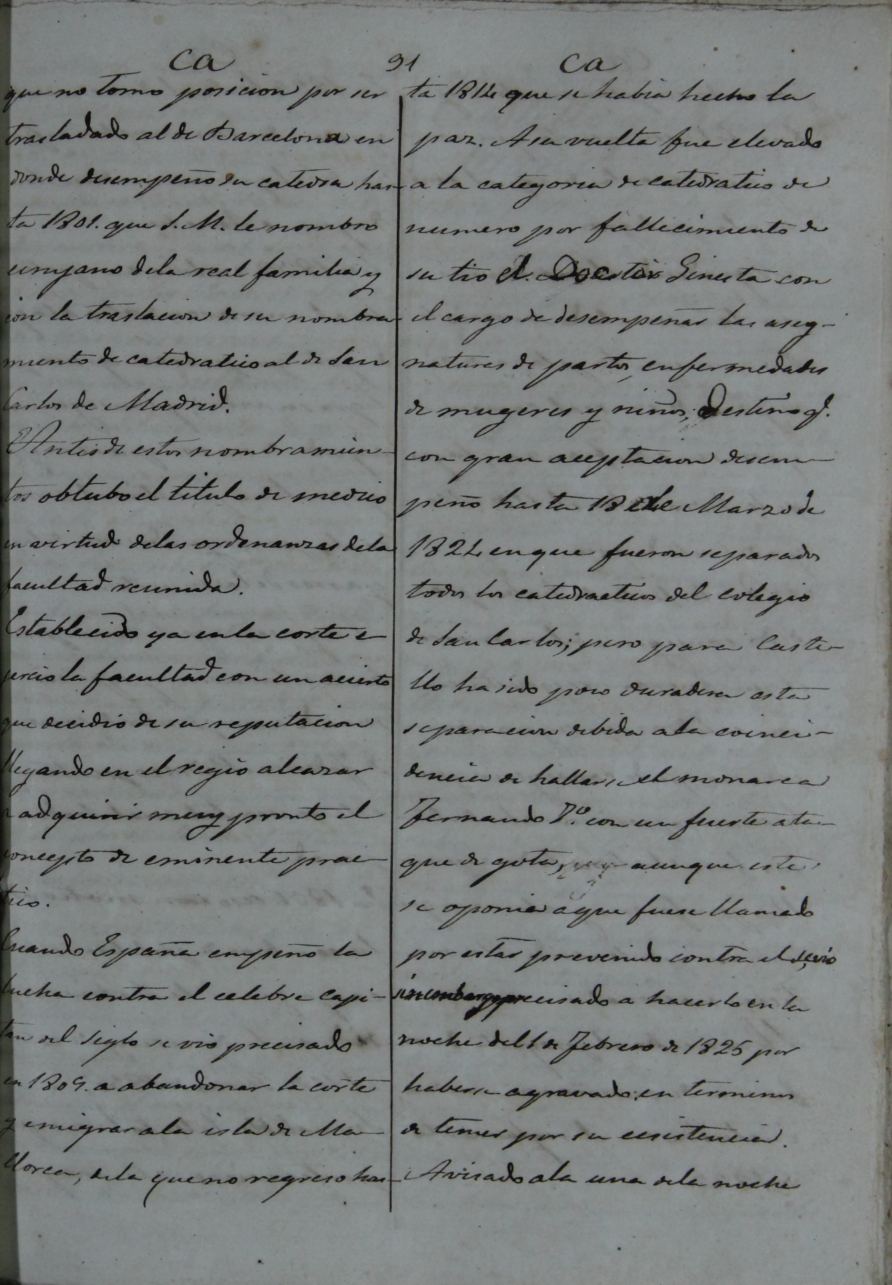 ca 91 ca
que no tomo posicion por ser
trasladado al de Barcelona en
donde desempeño su catedra has-
ta 1801. que S. M. le nombro
cirujano de la real familia y
con la traslacion de su nombra-
miento de catedratico al de San
Carlos de Madrid.
Antes de estos nombramien-
tos obtubo el titulo de medico
en virtud de las ordenanzas de la
facultad reunida.
Establecido ya en la corte e-
jercio la facultad con un acierto
que decidio de su reputacion
llegando en el regio alcazar
a adquirir muy pronto el
concepto de eminente prac-
tico.
Cuando España empeño la
lucha contra el celebre capi-
tan del siglo se vio precisado
en 1809. a abandonar la corte
y emigrar a la isla de Ma-
llorca, de la que no regreso has-
ta 1814 que se habia hecho la
paz. A su vuelta fue elevado
a la categoria de catedratico de
numero por fallecimiento de
su tio el Doctor Ginesta con
el cargo de desempeñar las asig-
natures de partos, enfermedades
de mugeres y niños; Destino q.
con gran aceptacion desem-
peño hasta 18 de Marzo de
1824 en que fueron separados
todos los catedraticos del colegio
de San Carlos; pero para Caste-
llo ha sido poco duradera esta
separacion debida a la coinci-
dencia de hallarse el monarca
Fernando 7.º con un fuerte ata-
que de gota, y aunque este
se oponia a que fuese llamado
por estar prevenido contra el se vio
sin embargo precisado a hacerlo en la
noche del 1 de Febrero de 1825 por
haberse agravado en terminos
de temer por su ecsistencia.
Avisado a la una de la noche